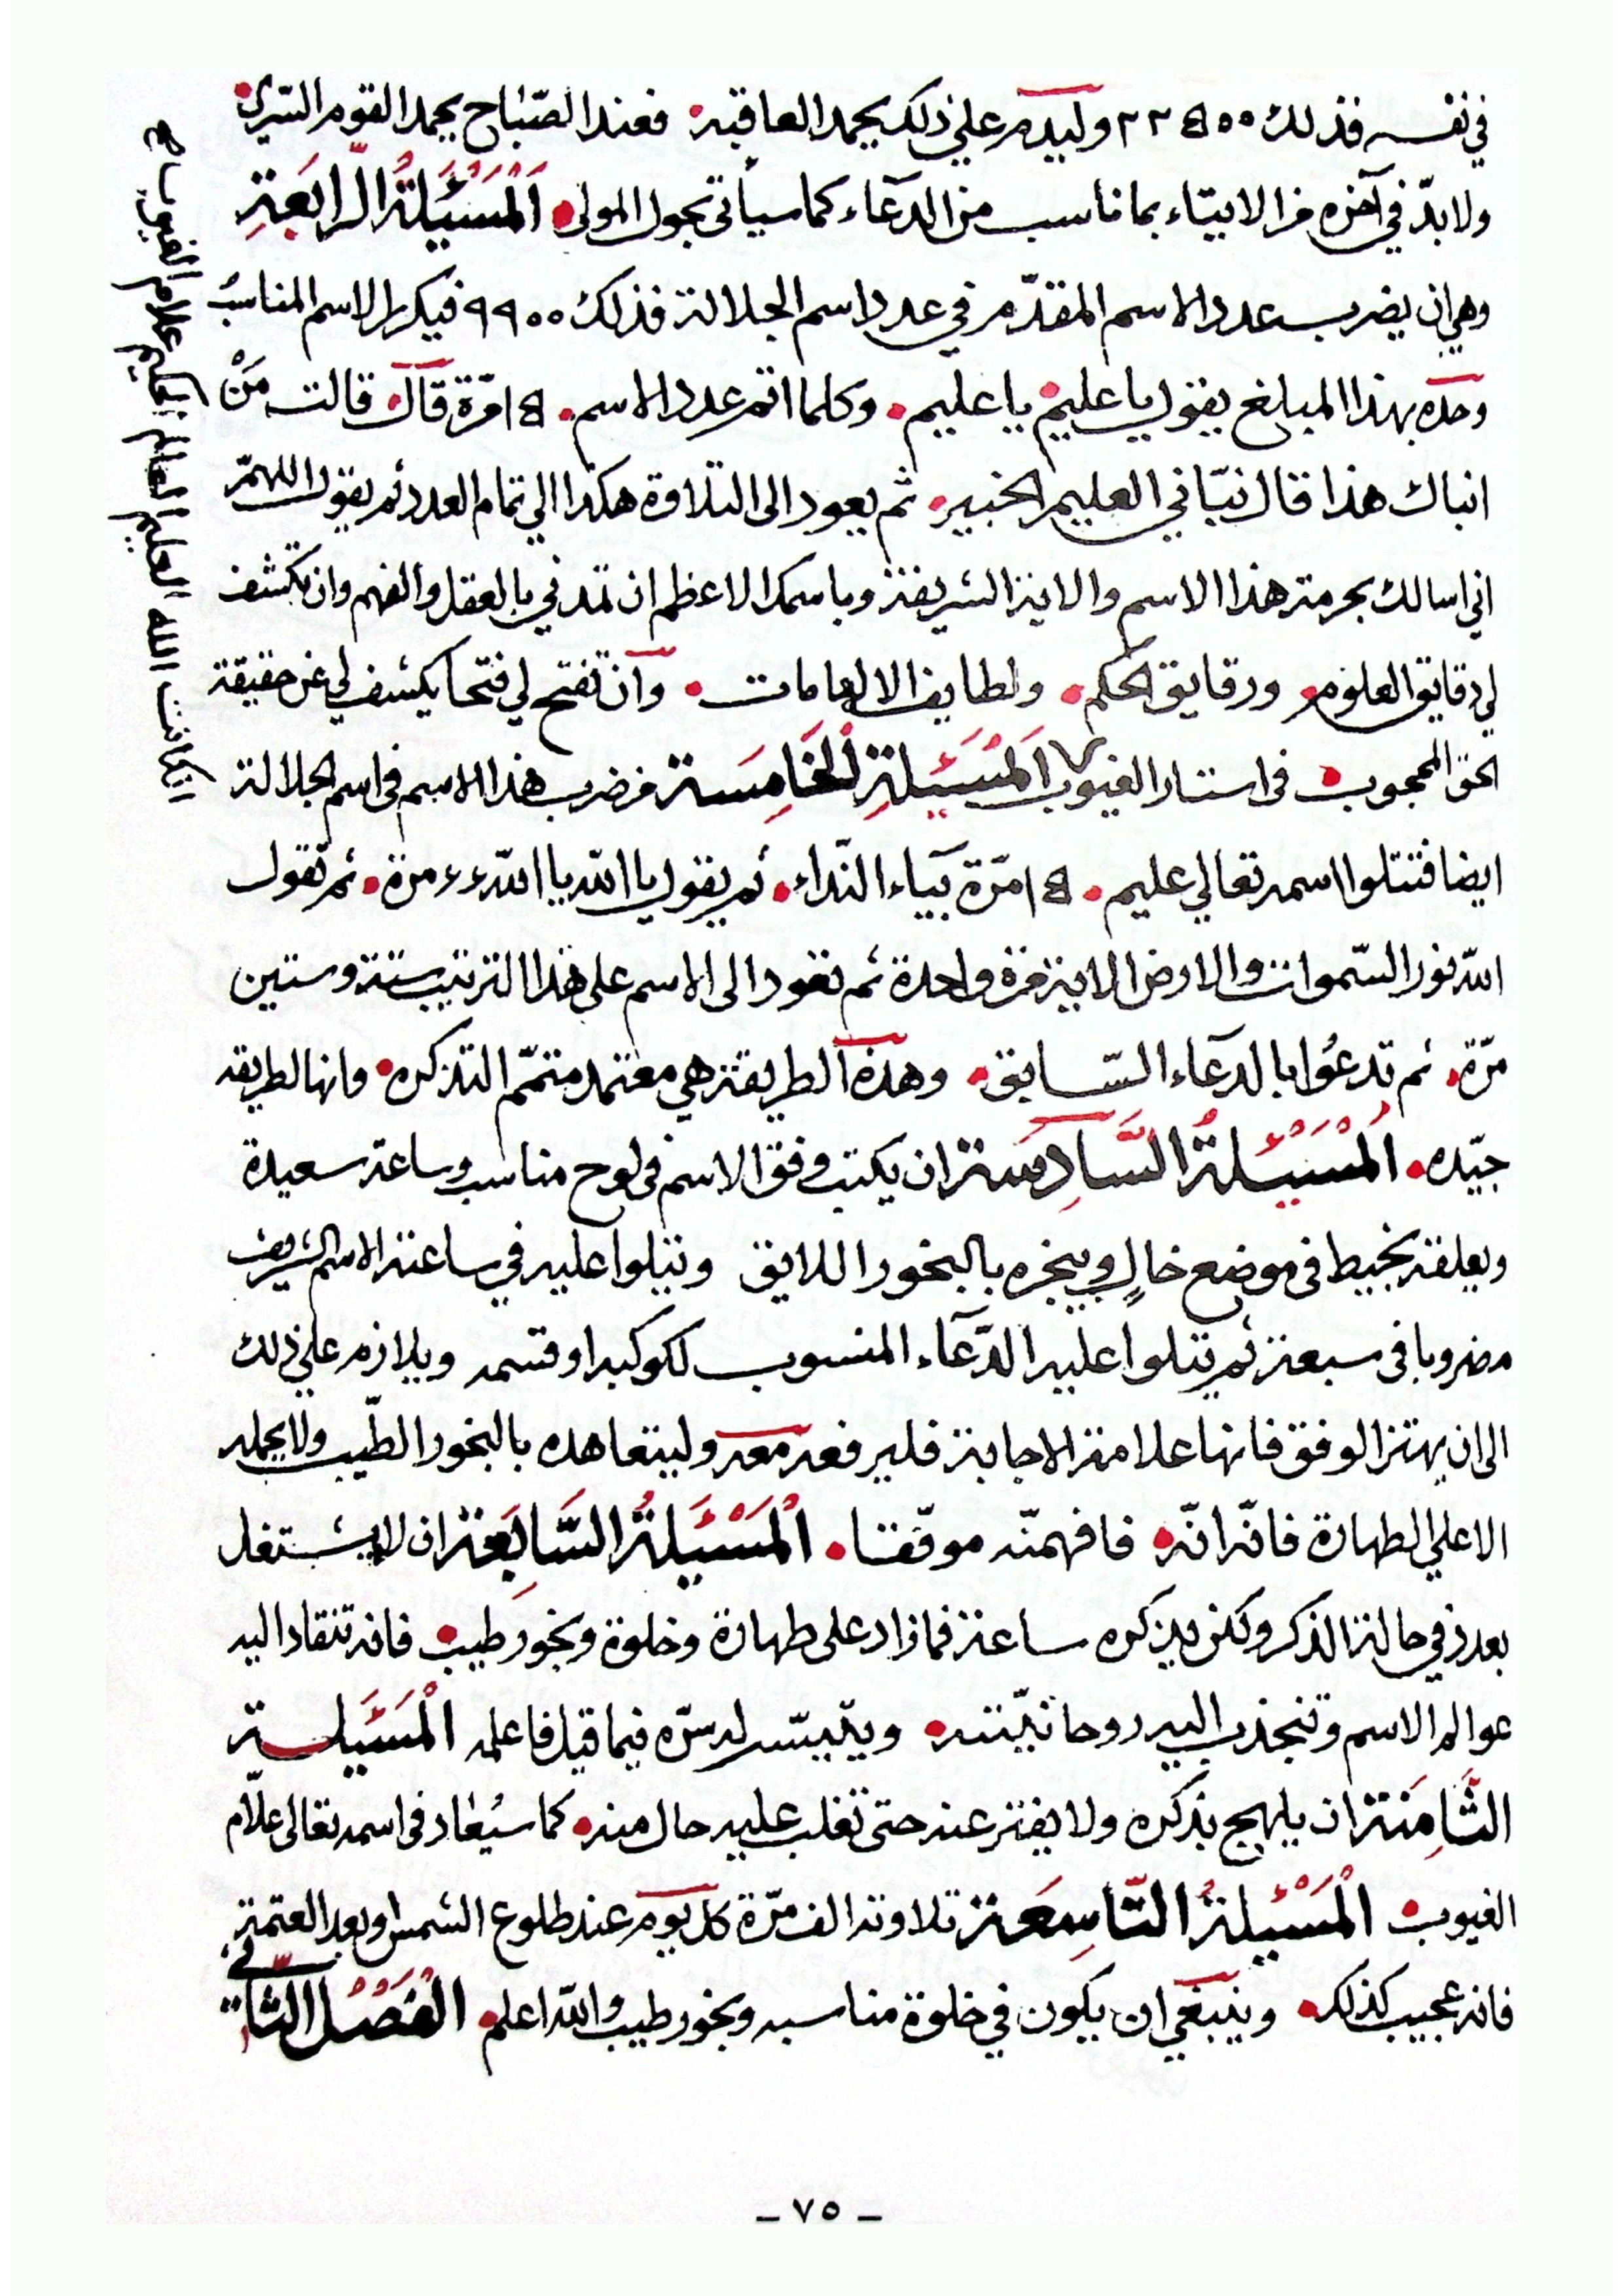 في نفسه فذلك ٢٢٥٠٠ وليدم علي ذلك يحمد العاقبة فعند الصّباح يحمد القوم السّري
ولا بدّ في آخره من الاتيّاء بما ناسب من الدعآء كما سيأتي بحول المولي اَلْمَسْئَيلَةُ الرّابَعَةِ
وهي ان يضرب عدد الاسم المقدّم في عدد اسم الجلالة فذلك ٩٩٠٠ فيكرر الاسم المناسبُ
وحده بهذا المبلغ يقول يا عليم يا عليم . وكلما اتم عدد الاسم . ١٥٠ مرّة قآل قالت مَنْ
انباك هذا قال نبّاني العليم الخبير . ثم يعود الى التلاوة هكذا الي تمام العدد ثم يقول اللهمّ
اني اسالك بحرمة هذا الاسم والاية الشريفة وباسمك الاعظم ان تمدني بالعقل والفهم وان تكشف
لي دقايق العلوم ورقايق الحكم . ولطايف الالهامات . وآن تفتح لي فتحا يكشف لي عن حقيقة
الحق المحجوب في استار الغيوب اَلمَسْئَيلَةِ اْلخَامِسَة من ضرب هذا الاسم في اسم الجلالة
ايضا فتتلوا اسمه تعالي عليم . ١٥٠ مرّة بيآء النّداء . ثم يقول يا اللّه يا اللّه ٤٤ مرة . ثم تقول
اللّه نور السّموات والارض الاية مرة واحدة ثم تعود الى الاسم على هذا الترتيب ستة وستين
مرّة . ثم تدعُوا بالدعآء السّابق . وهذه الطريقة هي معتمد متمّم التذكره . وانها لطريقه
جيّده . اَلْمْسَيْئَلَةُ السَّآدِسَة ان يكتب وفق الاسم في لوح مناسب وساعة سعيدة
ويعلقه بخيط في موضع خالٍ ويبخره بالبخور اللايق وتتلوا عليه في ساعته الاسم الشريف
مضروبا في سبعة ثم تتلوا عليه الدّعآء المنسوب لكوكبه او قسمه ويلازم علي ذلك
الى ان يهتز الوفق فانها علامة الاجابة فليرفعه معه وليتعاهده بالبخور الطّيب ولا يحمله
الا علي الطهارة فانّه انّه فافهمنّه موفّقا . اْلمَسْئَيلَةُ السَّابِعَة ان لا يشتغل
بعدد في حالة الذكر ولكن يذكره ساعة فما زاد على طهارة وخلوة وبخور طيب فانه تنقاد اليه
عوالم الاسم وتنجذب اليه روحانيّته ويتيسّر له سرّه فيما قيل فاعلمه الْمَسْئَيلة
الثَّامِنَة ان يلهج بذكره ولا يفتر عنه حتى تغلب عليه حال منه كما سيُعاد في اسمه تعالى علاّم
الغيوب الْمَسْئَيلَةُ التّاسِعَة تلاوته الف مرّة كل يوم عند طلوع الشمس او بعد العتمة
فانه عجيب كذلك . وينبغي ان يكون في خلوة مناسبه وبخور طيب واللّه اعلم . الفَصْلُ الثّاني
انكانت الله العليم العالم الحكيم علام الغيوب
- ٧٥ -